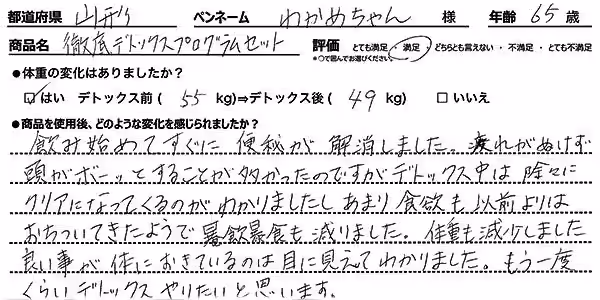 都道府県 山形 ペンネーム わかめちゃん 様 年齢 65 歳
商品名 徹底デトックスプログラムセット 評価 とても満足・満足・どちらとも言えない・不満足・とても不満足
*○で囲んでお選びください。
●体重の変化はありましたか?
☑はい デトックス前( 55 kg)⇒デトックス後( 49 kg) □いいえ
●商品を使用後、どのような変化を感じられましたか?
飲み始めてすぐに 便秘が 解消しました。疲れがぬけず
頭がボーッとすることが多かったのですがデトックス中は 除々に
クリアになってくるのが わかりましたし あまり 食欲も 以前よりは
おちついてきたようで 暴飲暴食も 減りました。体重も減少しました
良い事が 体に おきているのは 目に見えてわかりました。もう一度
くらい デトックス やりたいと 思います。